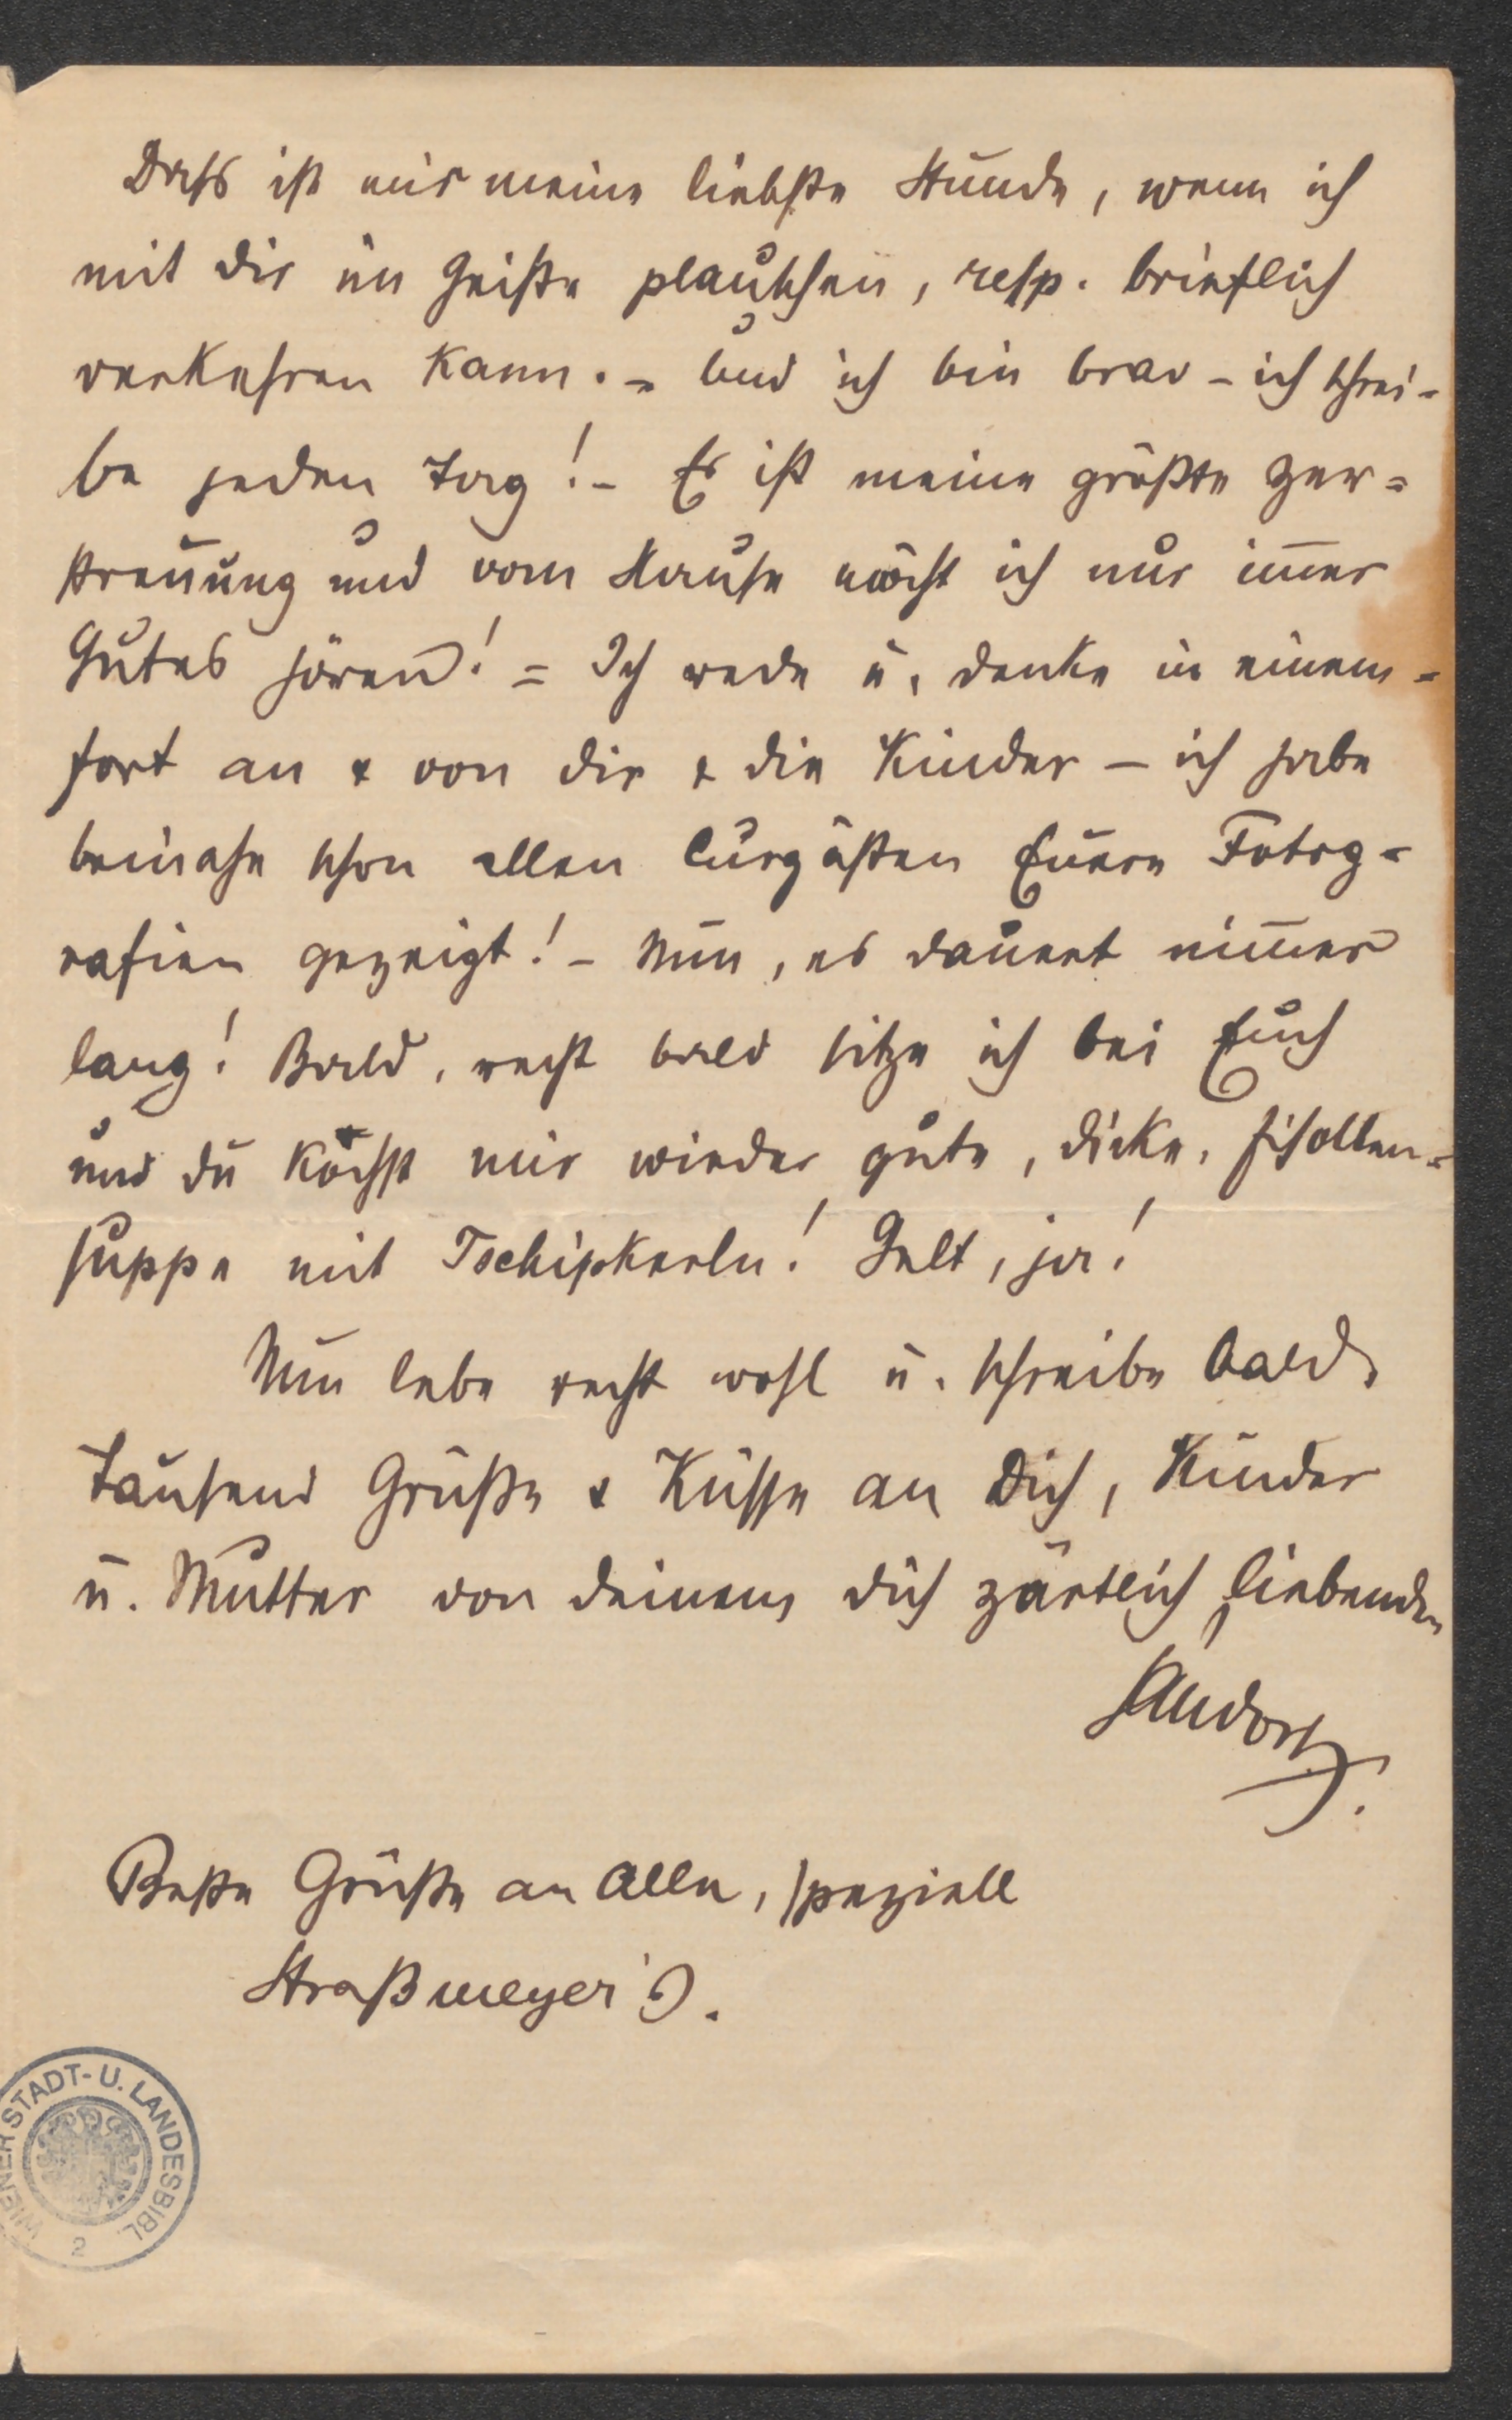 Dass ist mir meine liebste Stunde, wenn ich
mit dir im Geiste plauschen, resp. brieflich
verkehren kann. – Und ich bin brav – ich schrei-
be jeden Tag! – Es ist meine größte Zer-
streuung und vom Hause möcht ich nur im̅er
Gutes hören! – Ich rede u. denke in einem-
fort an & von dir & die Kinder – ich habe
beinahe schon allen Curgästen Euere Fotog-
rafien gezeigt! – Nun, es dauert nim̅er
lang! Bald, recht bald sitze ich bei Euch
und du kochst mir wieder gute, dicke, Fisollen-
suppe mit Tschipkerln! Gelt, ja!
Nun lebe recht wohl u. schreibe bald.
Tausend Grüße & Küsse an Dich, Kinder
u. Mutter von deinem dich zärtlich liebenden
Beste Grüße an Alle, speziell
Straßmeyer's.
WIENER STADT- U. LANDESBIBL.
2